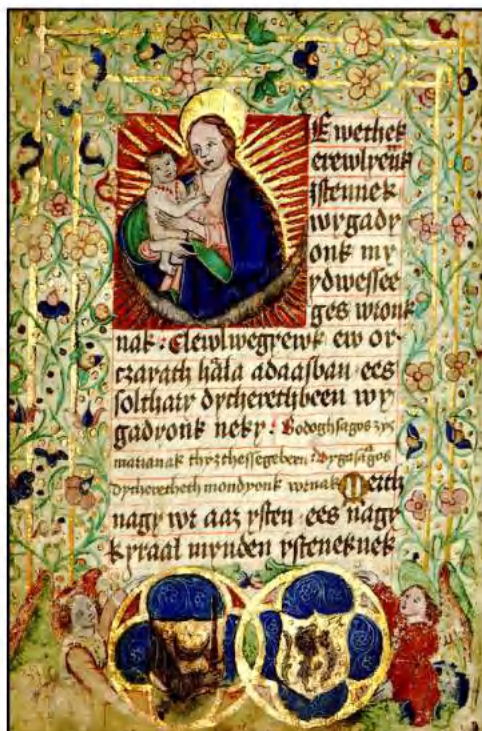 Ewethek
erewlyenk
istennek
wygady
onk my
ydwessee
ges wronk
nak : Elewlwegyewk ew or
czayath hala adaasban ees
solthary dycherethbeen wy
gadyonk neky : Bodoghsagos zyz
marianak thyzthessegebern : Vygasagos
dycheretheth mondyonk wrnak Merth
nagy wr aaz ysten ees nagy
kyraal mynden ysteneknek